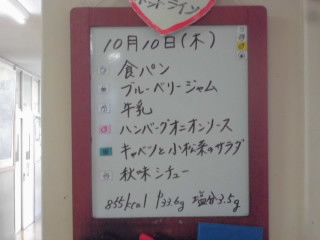 10月10日(木)
食パン
ブルーベリージャム
牛乳
ハンバーグオニオンソース
キャベツと小松菜のサラダ
秋味シチュー
855kcal P33.6g 塩分3.5g